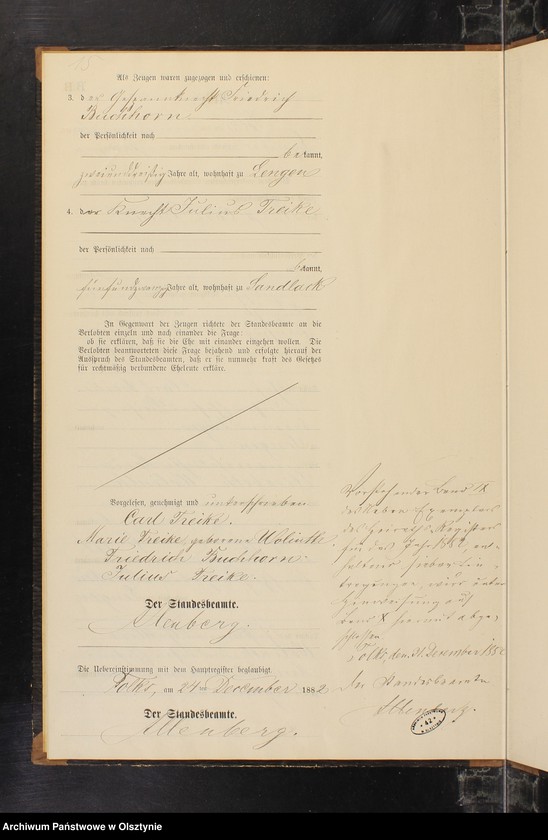 15
Als Zeugen waren zugezogen und erschienen:
3. der Gespannknecht Friedrich
Buchhorn
der Persönlichkeit nach
bekannt,
zweiunddreißig Jahre alt, wohnhaft zu Lengen
4. der Knecht Julius Treike
der Persönlichkeit nach
bekannt,
fünfundzwanzig Jahre alt, wohnhaft zu Sandlack
In Gegenwart der Zeugen richtete der Standesbeamte an die
Verlobten einzeln und nach einander die Frage:
ob sie erklären, daß sie die Ehe mit einander eingehen wollen. Die
Verlobten beantworteten diese Frage bejahend und erfolgte hierauf der
Ausspruch des Standesbeamten, daß er sie nunmehr kraft des Gesetzes
für rechtmäßig verbundene Eheleute erkläre.
Vorgelesen, genehmigt und unterschrieben
Carl Treike.
Marie Treike geborene
Friedrich Buchhorn.
Julius Treike.
Der Standesbeamte.
Altenberg.
Die Uebereinstimmung mit dem Hauptregister beglaubigt.
am 24ten December 1882
Der Standesbeamte.
Altenberg.
Vorstehender Band IX
des Neben Exemplars
des Heirats-Registers
für das Jahr 1882, ent-
haltend
wird unter
Hinweisung auf
Band X hiermit abge-
schlossen
den 31. Dezember 1882
Der Standesbeamte
Altenberg.
42
Archiwum Państwowe w Olsztynie